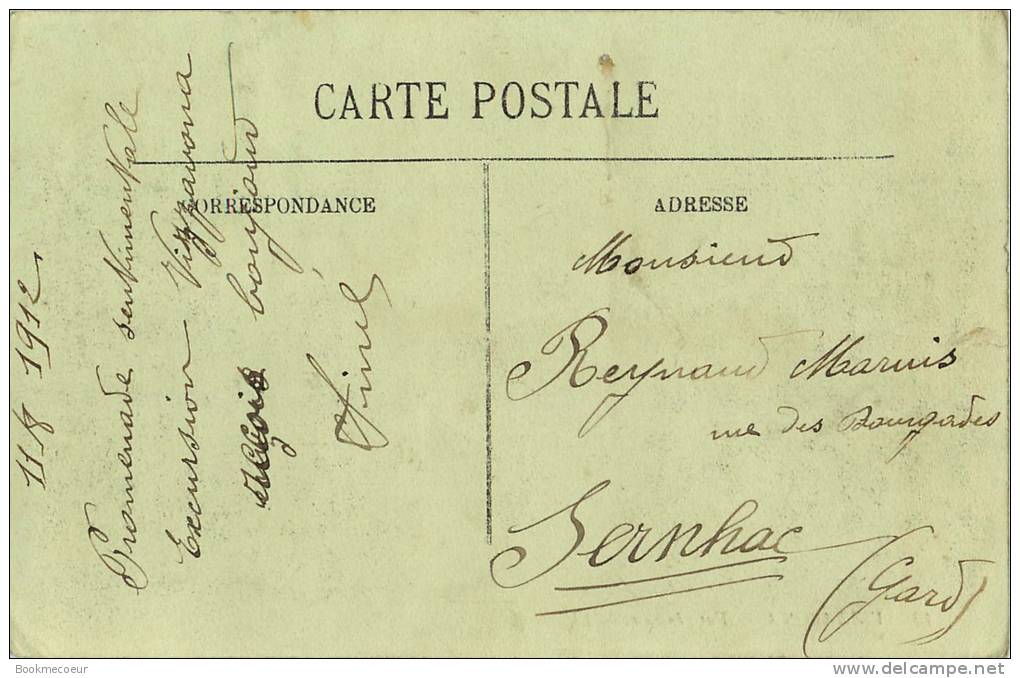 CARTE POSTALE
CORRESPONDANCE
ADRESSE
11/8 1912
Promenade sentimentale
Excursion Vizzavona
bonjour
Monsieur
Reynaud Marius
rue des Bourgades
Sernhac
(Gard)
Bookmecoeur
delcampe.net